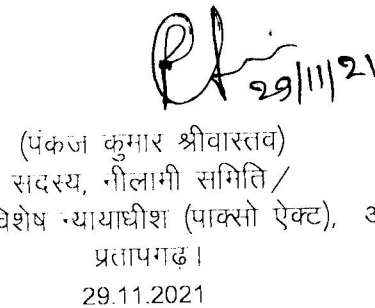 29/11/21
(पंकज कुमार श्रीवास्तव)
सदस्य, नीलामी समिति/
विशेष न्यायाधीश (पाक्सो ऐक्ट),
प्रतापगढ़।
29.11.2021